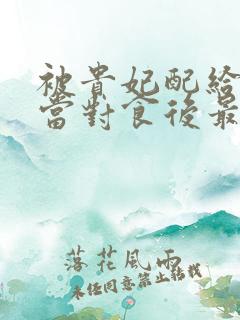 被貴妃配給
當對食後最
落花風雨
未經同意禁止轉載